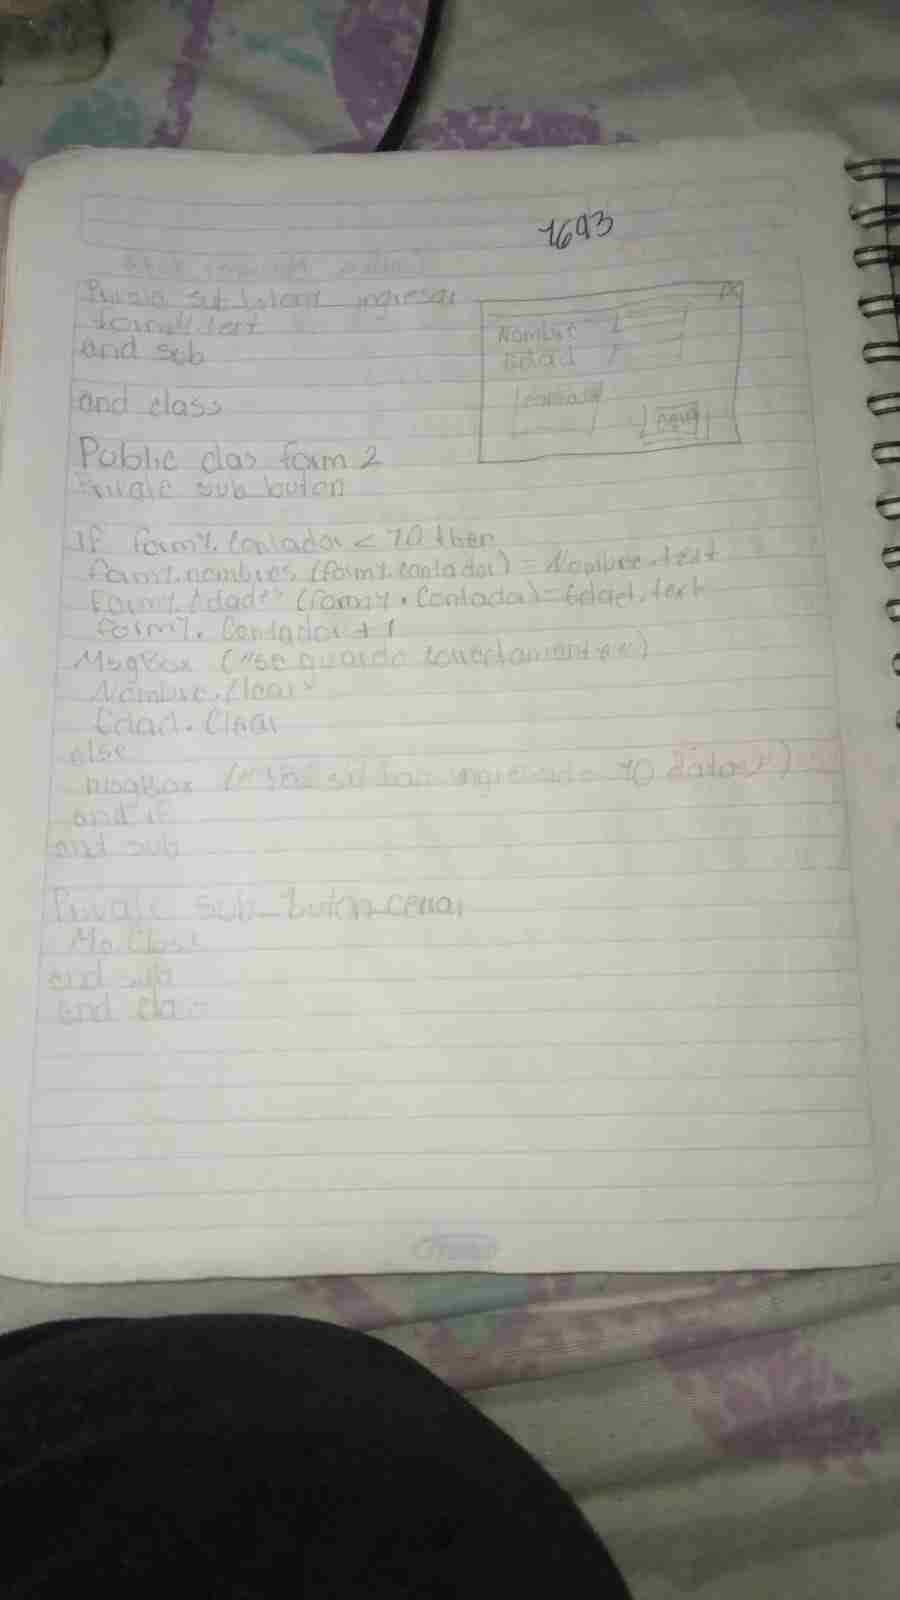 1693
Private sub buton ingresar
form2.text
and sub
Nombre
Edad
and class
Public clas form 2
Private sub buton
If form1.Contador < 10 then
form1.nombres (form1.contador) = Nombre.text
Form1.Edades (form1.Contador) = Edad.text
form1.Contador + 1
MsgBox ("se guardo
Nombre.Clear
Edad.Clear
else
MsgBox ingresado 10 datos")
and if
and sub
Private sub_buton_cerrar
Me.Close
and sub
and clas